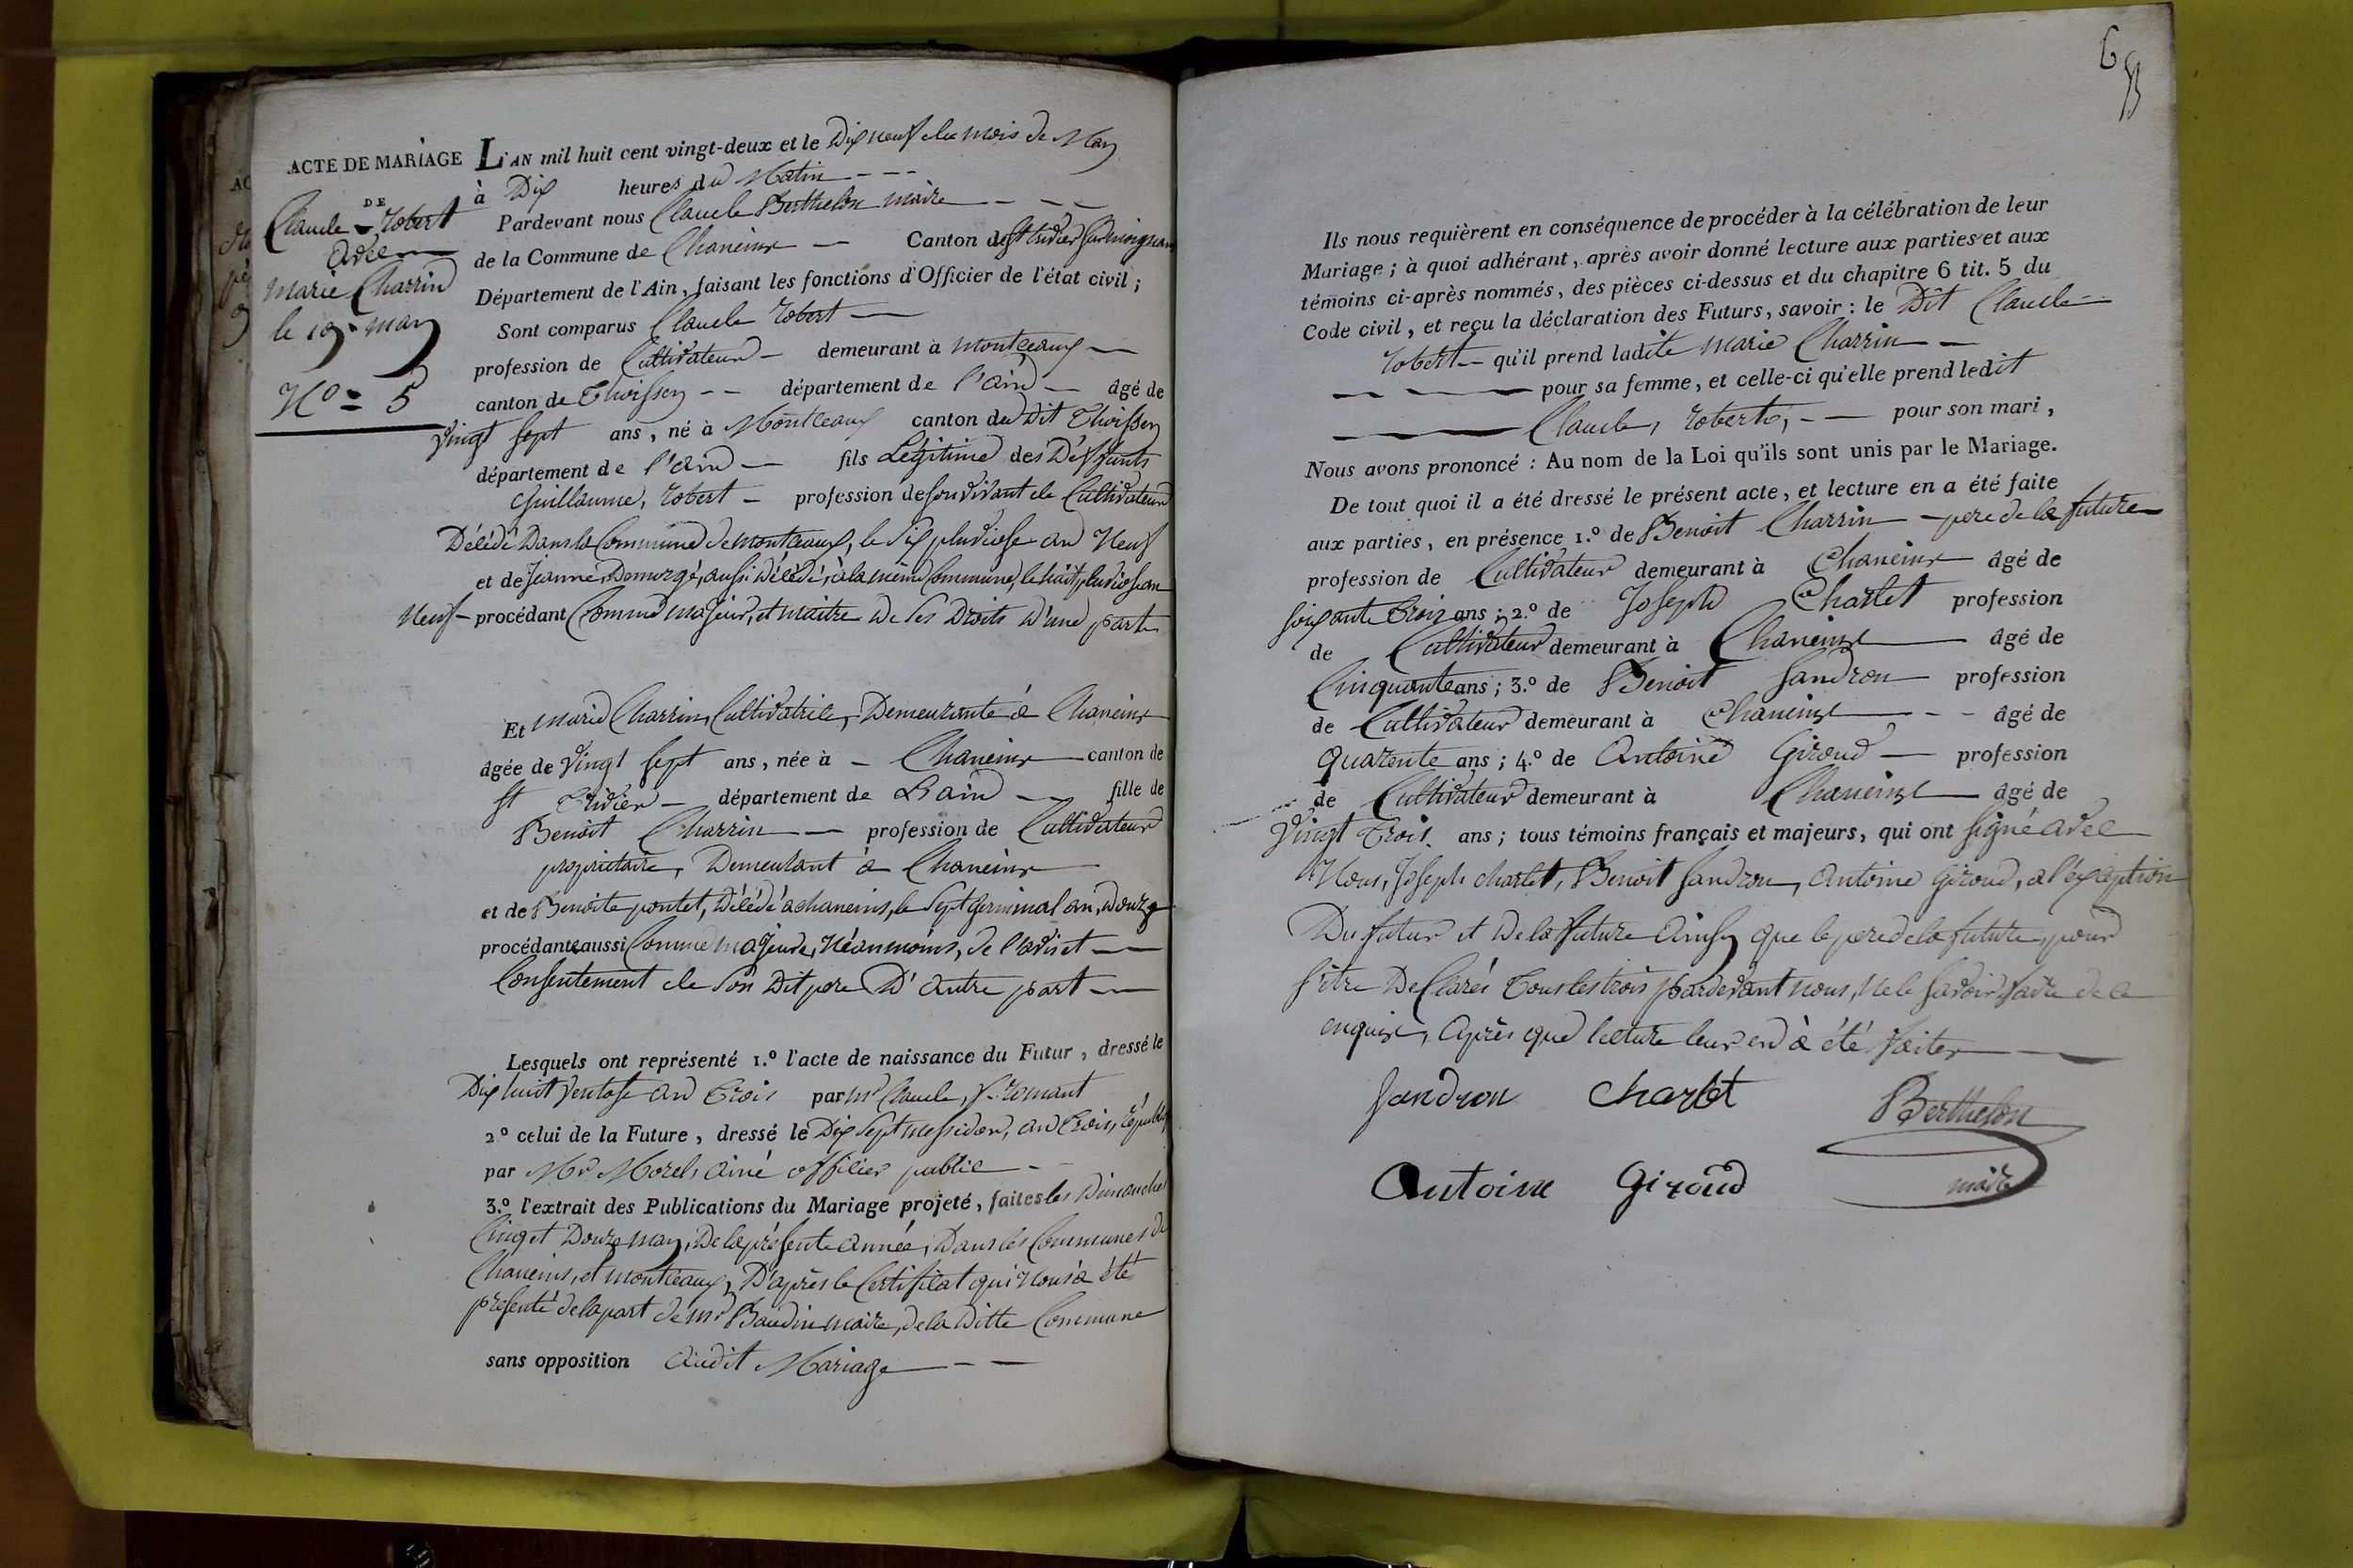 ACTE DE MARIAGE
DE
Claude Robert
avec
Marie Charrin
le 19 may
No = 5
L'AN mil huit cent vingt-deux et le Dix neuf du mois de May
à Dix heures du Matin
Pardevant nous Claude Berthelon maire
de la Commune de Chaneins Canton de St tridier Sur moignans
Département de l'Ain, faisant les fonctions d'Officier de l'état civil;
Sont comparus Claude Robert
profession de Cultivateur demeurant à Montceaux
canton de Thoissey département de l'ain âgé de
Vingt Sept ans, né à Montceaux canton du Dit Thoissey
département de l'ain fils Légitime des Deffunts
Guillaume, Robert profession de Son vivant de Cultivateur
Décédé Dans la Commune de montceaux, le Six pluviose an Neuf
et de Jeanne Demurgé, aussi décédé, à la même Commune, le huit pluviose an
Neuf procédant Comme majeur, et maitre de Ses Droits d'une part
Et marie Charrin, Cultivatrice, Demeurante à Chaneins
âgée de Vingt Sept ans, née à Chaneins canton de
St Tridier département de Lain fille de
Benoit Charrin profession de Cultivateur
propriétaire, Demeurant à Chaneins
et de Benoite pontet, décédé a chaneins, le Sept germinal an, douze
procédante aussi Comme majeure, Néanmoins, de l'avis et
Consentement de Son Dit pere D'autre part
Lesquels ont représenté 1.º l'acte de naissance du Futur, dressé le
Dix huit Ventose an Trois par mr Claude, fromant
2º celui de la Future, dressé le Dix Sept messidor, an Trois, républ
par Mr Morel, ainé officier public
3.º l'extrait des Publications du Mariage projeté, faites les Dimanche
Cinq et Douze may, De la présente année, Dans les Communes de
Chaneins, et montceaux, D'après le Certificat qui Nous a été
présenté de la part de mr Baudin maire, de la Ditte Commune
sans opposition audit Mariage
6
Ils nous requièrent en conséquence de procéder à la célébration de leur
Mariage; à quoi adhérant, après avoir donné lecture aux parties et aux
témoins ci-après nommés, des pièces ci-dessus et du chapitre 6 tit. 5 du
Code civil, et reçu la déclaration des Futurs, savoir: le Dit Claude
Robert qu'il prend ladite Marie Charrin
pour sa femme, et celle-ci qu'elle prend ledit
Claude, Robert, pour son mari,
Nous avons prononcé: Au nom de la Loi qu'ils sont unis par le Mariage.
De tout quoi il a été dressé le présent acte, et lecture en a été faite
aux parties, en présence 1.º de Benoit Charrin pere de la future
profession de Cultivateur demeurant à Chaneins âgé de
Soixante Trois ans; 2.º de Joseph Charlet profession
de Cultivateur demeurant à Chaneins âgé de
Cinquante ans; 3.º de Benoit Sandron profession
de Cultivateur demeurant à Chaneins âgé de
quarente ans; 4.º de Antoine Giroud profession
de Cultivateur demeurant à Chaneins âgé de
Vingt Trois ans; tous témoins français et majeurs, qui ont Signé avec
Nous, Joseph charlet, Benoit Sandron, antoine giroud, a l'exception
Du futur et De la future ainsy que le pere de la future, pour
S'être Declarés Tous les trois pardevant nous, Ne le Savoir faire de ce
enquis, après que lecture leur en à été faites
Sandron Charlet Berthelon
Antoine Giroud maire